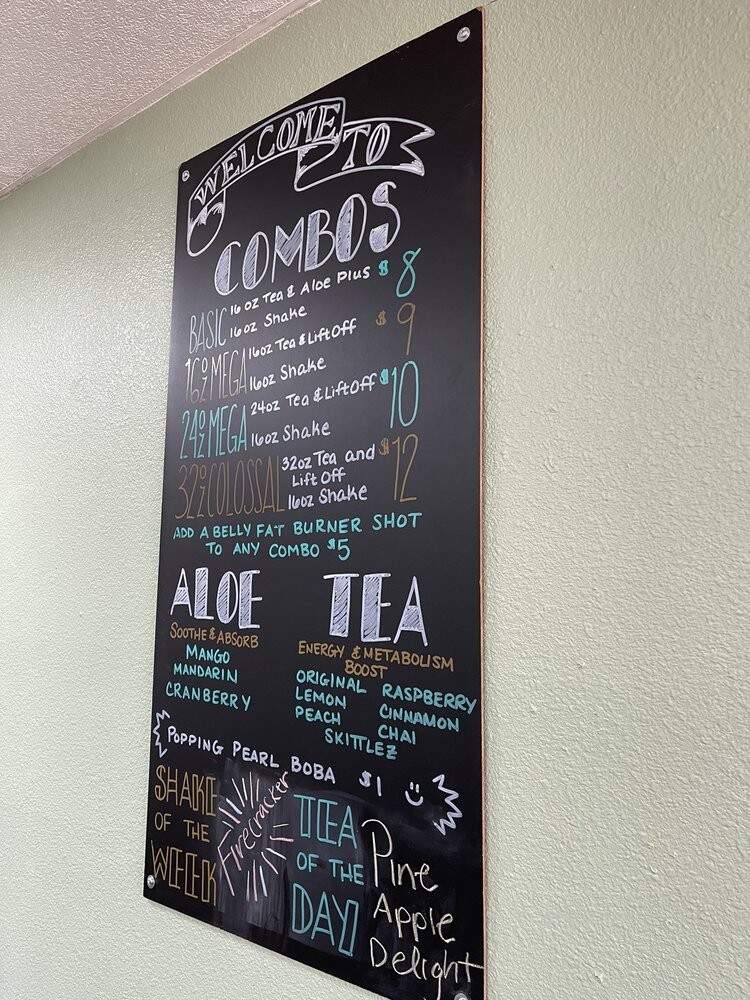 WELCOME TO
COMBOS
BASIC 16 oz Tea & Aloe Plus $8
16 oz Shake
16oz MEGA 16oz Tea & LiftOff $9
16oz Shake
24oz MEGA 24oz Tea & LiftOff $10
16oz Shake
32oz COLOSSAL 32oz Tea and $12
Lift Off
16oz Shake
ADD A BELLY FAT BURNER SHOT
TO ANY COMBO $5
ALOE
SOOTHE & ABSORB
MANGO
MANDARIN
CRANBERRY
TEA
ENERGY & METABOLISM
BOOST
ORIGINAL RASPBERRY
LEMON CINNAMON
PEACH CHAI
SKITTLEZ
POPPING PEARL BOBA $1
SHAKE
OF THE
WEEK
Firecracker
TEA
OF THE
DAY
Pine
Apple
Delight